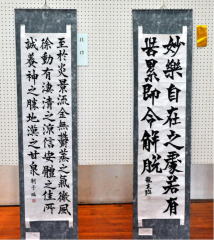 妙樂自在之處若有
苦累即今解脫
至於炎景流金無鬱蒸之氣微風
徐動有淒清之涼信安體之佳所
誠養神之勝地漢之甘泉